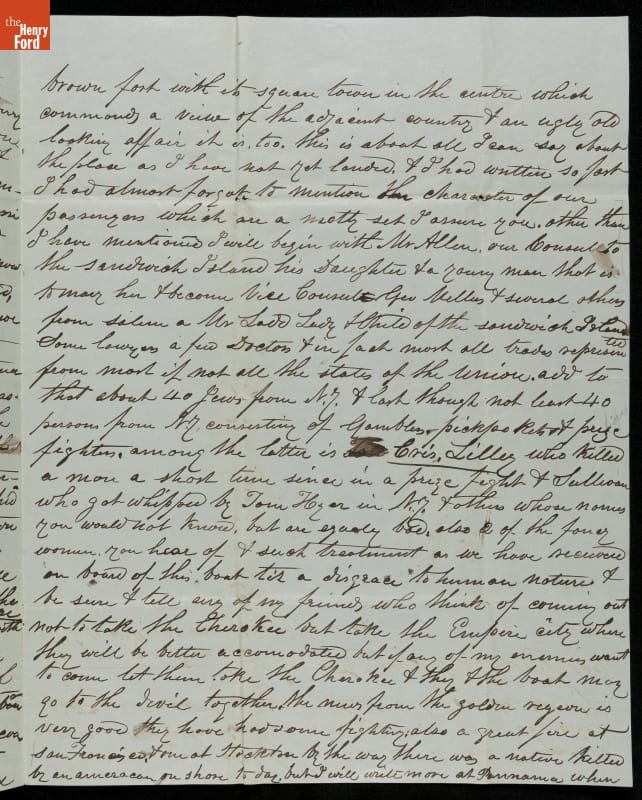 the
Henry
Ford
brown fort with its square town in the centre which
commands a view of the adjacent country & an ugly old
looking affair it is, too. this is about all I can say about
the place as I have not yet landed. & I had written so fast
I had almost forgot to mention the character of our
passengers which are a motly set I assure you. other than
I have mentioned I will begin with Mr Allen. our Consul to
the Sandwich Island his Daughter & a young man that is
to marry her & become Vice Consul Geo Mellus & several others
from Salem a Mr Ladd Lady & child of the Sandwich Island
Some lawyers a few Doctors & in fact most all trades represen ted
from most if not all the states of the Union. add to
that about 40 Jews from N.Y. & last though not least 40
persons from N.Y. consisting of Gamblers, pickpockets & prize
fighters. among the latter is Cris. Lilley who killed
a man a short time since in a prize fight & Sullivan
who got whipped by Tom Hyer in N.Y & others whose names
you would not know. but are equaly bad. also of the fancy
women. you hear of & such treatment as we have received
on board of this boat tis a disgrace to human nature &
be sure & tell any of my friends who think of coming out
not to take the Cherokee but take the Empire city where
they will be better accomodated but if any of my enemies want
to come let them take the Cherokee & they & the boat may
go to the Devil together. the news from the golden regeon is
very good they have had some fighting; also a great fire at
San Francisco & one at Stockton By the way there was a native killed
by an american on shore to day. but I will write more at Pannama when